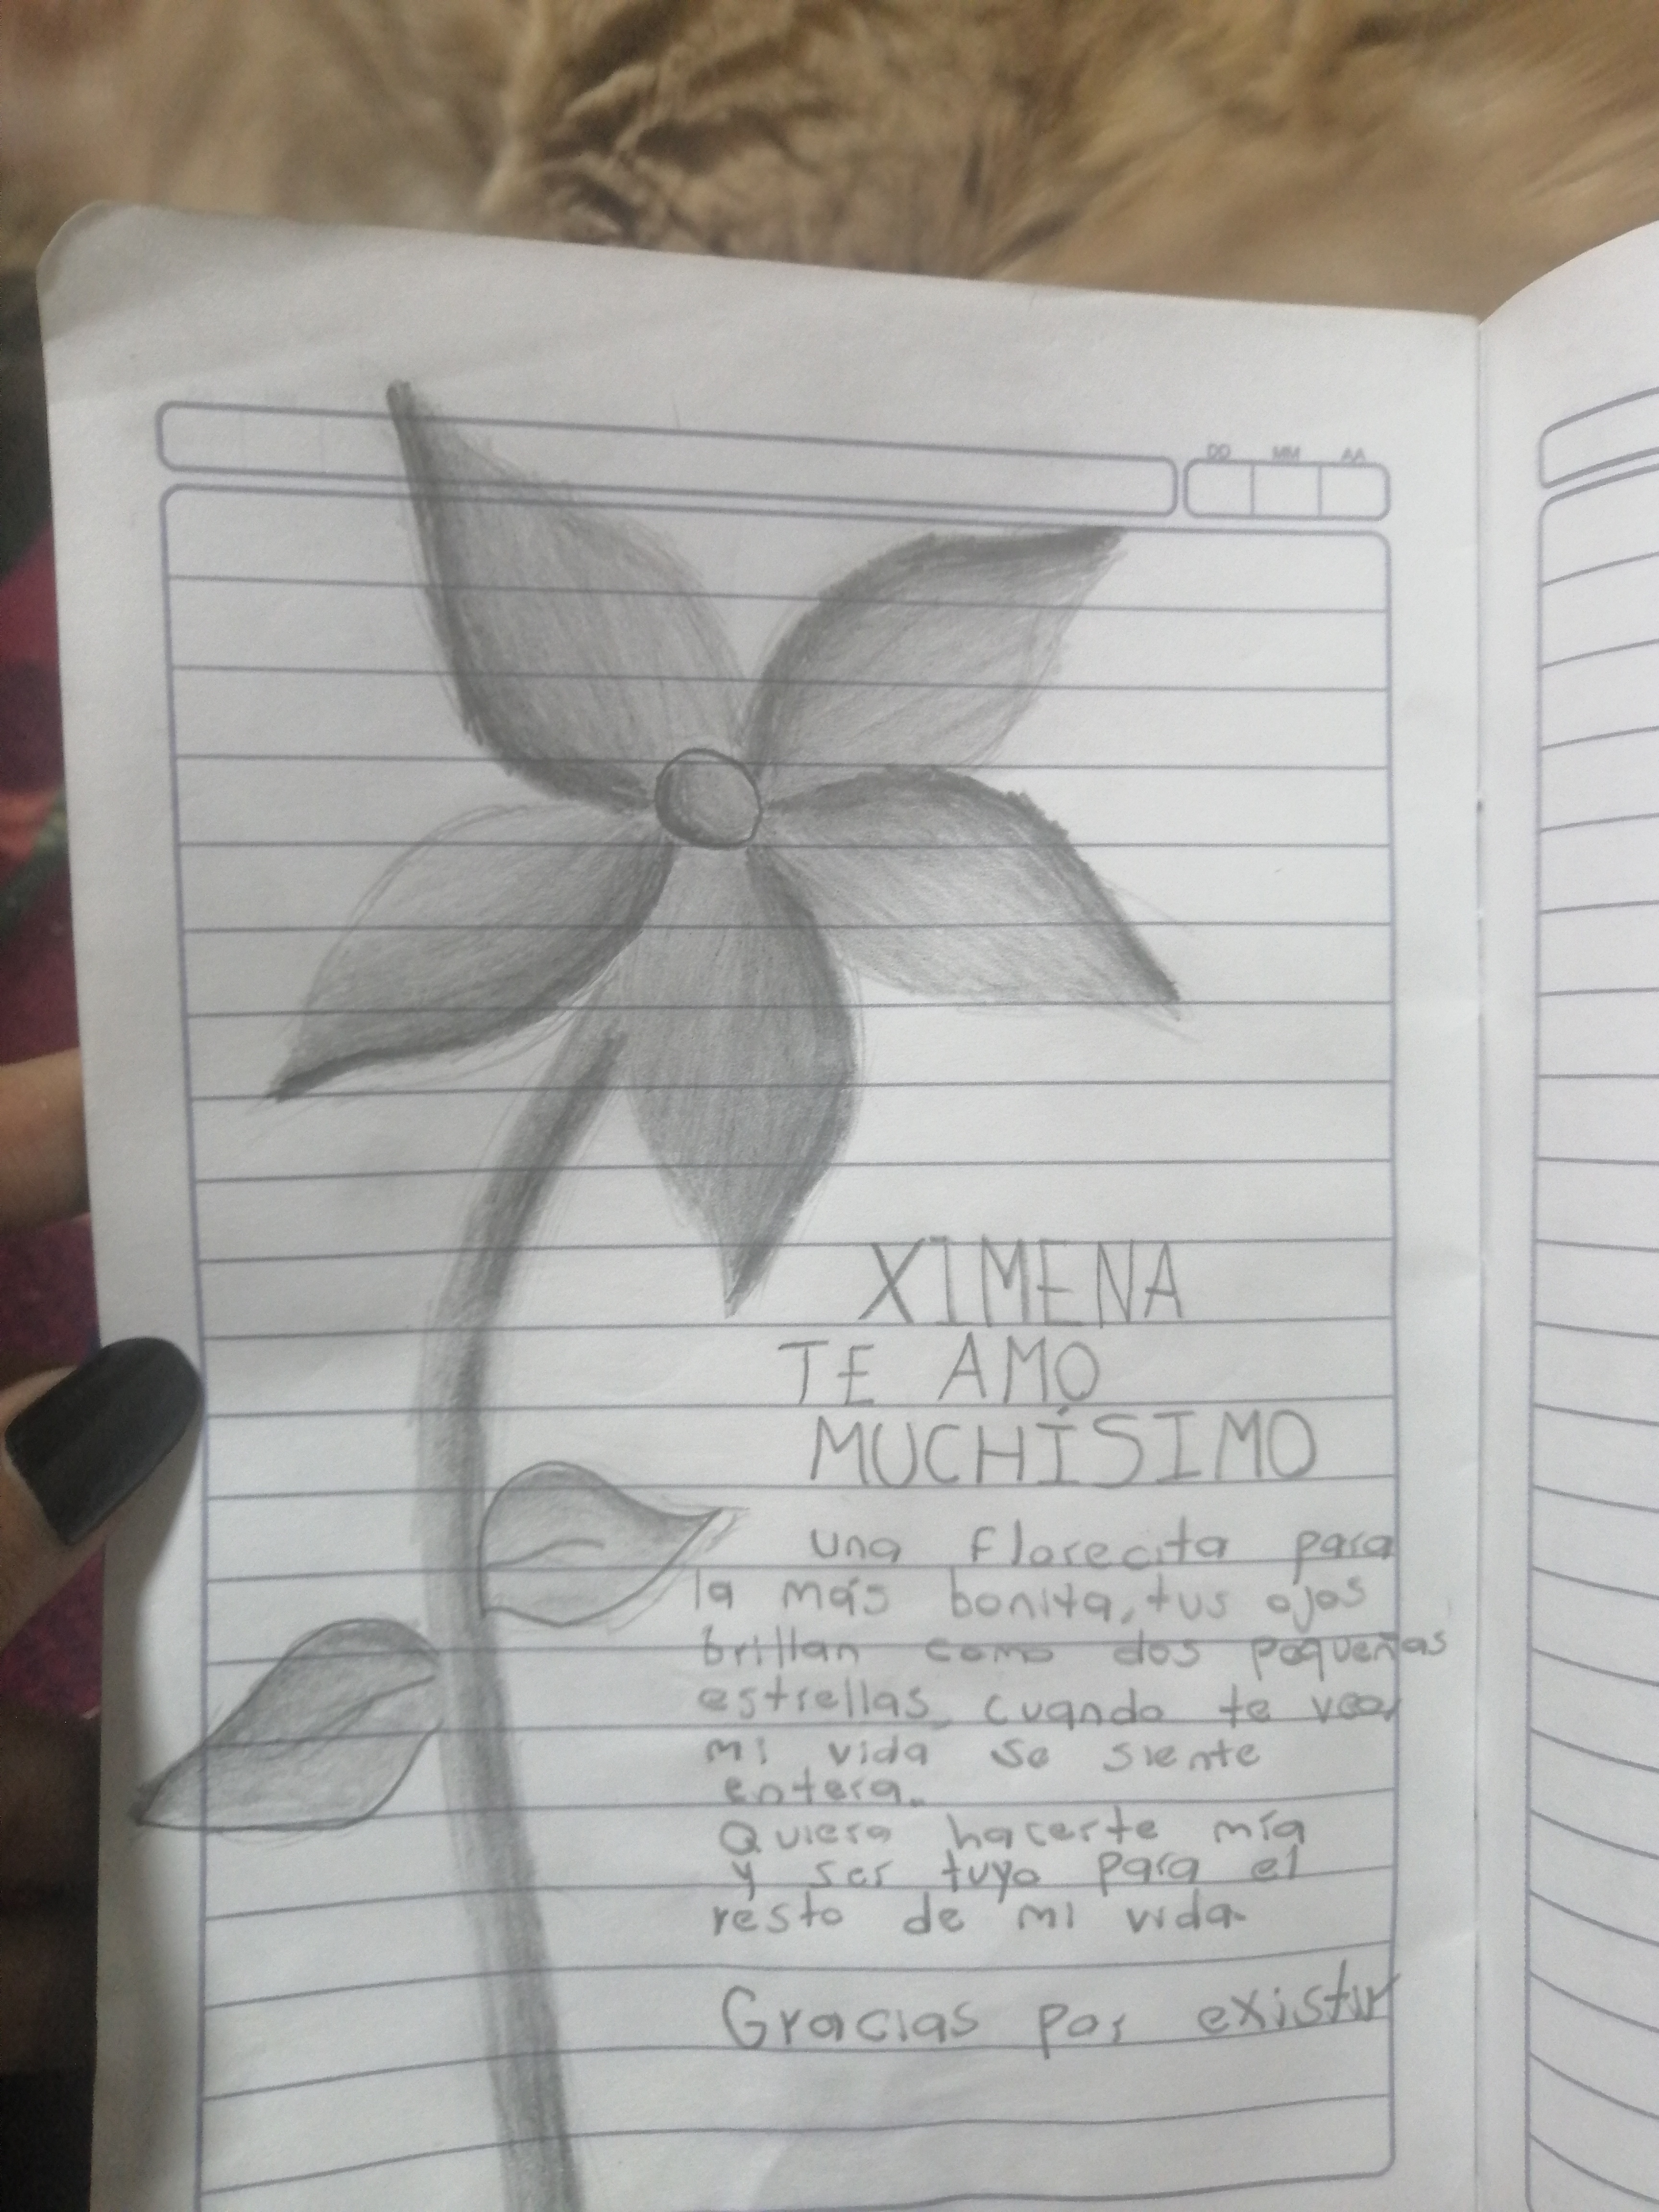 DD MM AA
XIMENA
TE AMO
MUCHÍSIMO
una florecita para
la más bonita, tus ojos
brillan como dos pequeñas
estrellas, cuando te veo,
mi vida se siente
entera.
Quiero hacerte mía
y ser tuyo para el
resto de mi vida.
Gracias por existir